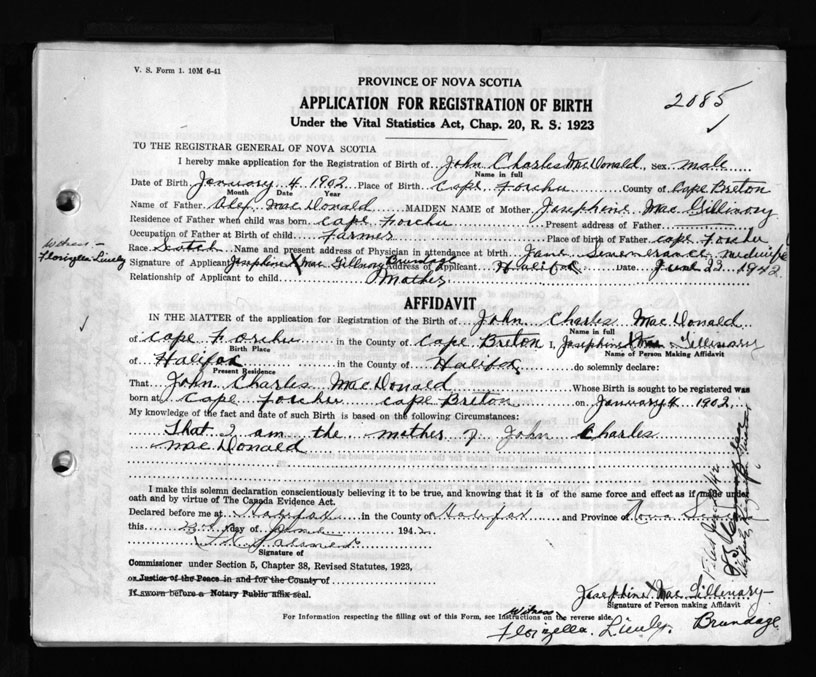 V. S. Form 1. 10M 6-41
PROVINCE OF NOVA SCOTIA
APPLICATION FOR REGISTRATION OF BIRTH
2085
Under the Vital Statistics Act, Chap. 20, R. S. 1923
TO THE REGISTRAR GENERAL OF NOVA SCOTIA
I hereby make application for the Registration of Birth of John Charles MacDonald Sex male
Name in full
Date of Birth January 4 1902 Place of Birth Cape Forchu County of Cape Breton
Month Date Year
Name of Father Alex MacDonald MAIDEN NAME of Mother Josephine Mac Gillivory
Residence of Father when child was born Cape Forchu Present address of Father
Occupation of Father at Birth of child Farmer Place of birth of Father Cape Forchu
Witness -
Race Scotch Name and present address of Physician in attendance at birth Jane midwife
Florizella Lively
Signature of Applicant Josephine X Mac Gillivory Brundage Address of Applicant Halifax Date June 23 1942
Relationship of Applicant to child Mother
AFFIDAVIT
IN THE MATTER of the application for Registration of the Birth of John Charles MacDonald
Name in full
of Cape Forchu in the County of Cape Breton I, Josephine X Mac Gillivary
Birth Place Name of Person Making Affidavit
of Halifax in the County of Halifax do solemnly declare:
Present Residence
That John Charles MacDonald Whose Birth is sought to be registered was
born at Cape Forchu Cape Breton on January 4 1902.
My knowledge of the fact and date of such Birth is based on the following Circumstances:
That I am the mother of John Charles
MacDonald
I make this solemn declaration conscientiously believing it to be true, and knowing that it is of the same force and effect as if made under
oath and by virtue of The Canada Evidence Act.
Declared before me at Halifax in the County of Halifax and Province of Nova Scotia
this 23rd day of June 1942
Signature of
Commissioner under Section 5, Chapter 38, Revised Statutes, 1923,
or Justice of the Peace in and for the County of
If sworn before a Notary Public affix seal.
Josephine X Mac Gillivary
Signature of Person making Affidavit
For Information respecting the filling out of this Form, see Instructions on the reverse side.
Witness
Florizella Lively Brundage